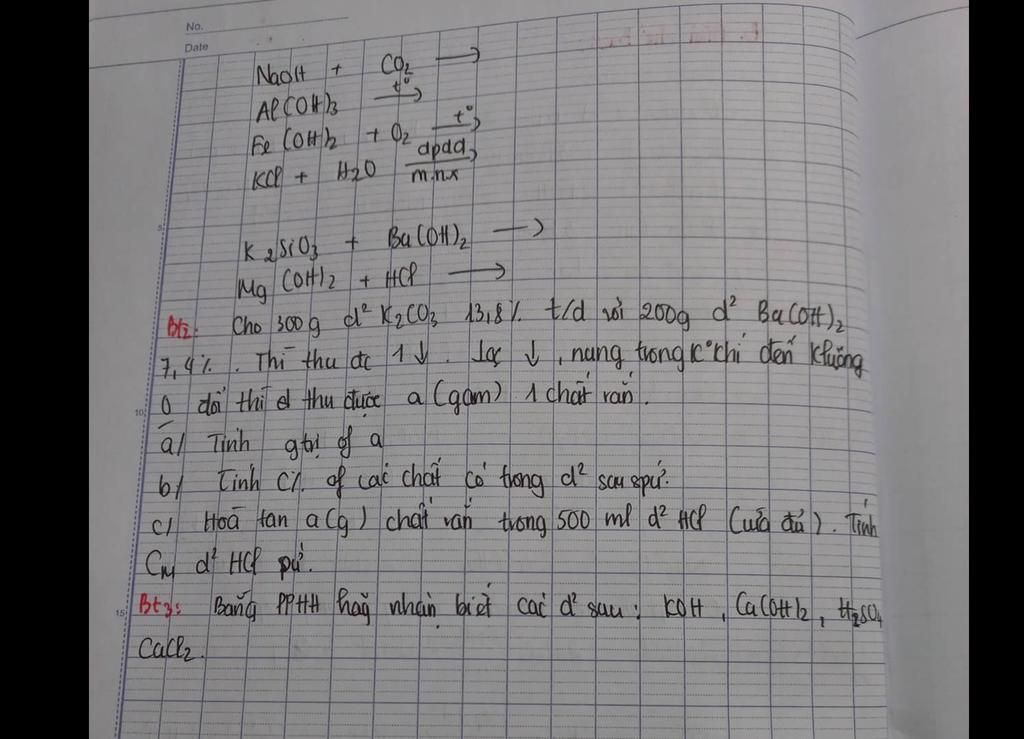 No.
Date
NaOH + CO₂ →
Al(OH)₃ t° →
Fe(OH)₂ + O₂ t° →
KCl + H₂O đpdd m.n.x →
5
K₂SiO₃ + Ba(OH)₂ →
Mg(OH)₂ + HCl →
Bt2: Cho 300g d² K₂CO₃ 13,8% t/d với 200g d² Ba(OH)₂
7,4%. Thì thu đc 1↓. Lọc ↓, nung trong k° khí đến khi
10 0 đổi thì thu được a (gam) 1 chất rắn.
a/ Tính gtrị of a
b/ Tính C% of các chất có trong d² sau pứ.
c/ Hoà tan a(g) chất rắn trong 500 ml d² HCl (vừa đủ). Tính
C_M d² HCl pứ.
15 Bt3: Bằng PPHH hãy nhận biết các d² sau: KOH, Ca(OH)₂, H₂SO₄
CaCl₂.